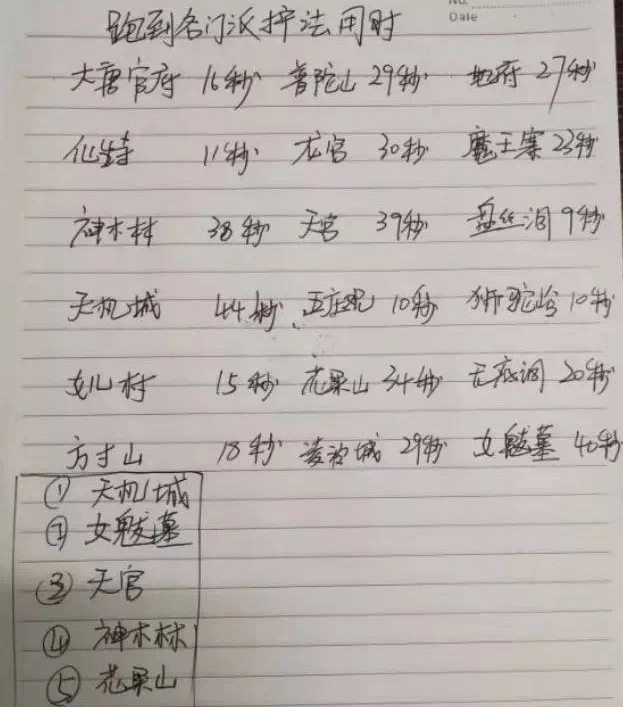 No.
Date
跑到各门派护法用时
大唐官府 16秒 普陀山 29秒 地府 27秒
化生寺 11秒 龙宫 30秒 魔王寨 23秒
神木林 38秒 天宫 39秒 盘丝洞 9秒
天机城 44秒 五庄观 10秒 狮驼岭 10秒
女儿村 15秒 花果山 34秒 无底洞 20秒
方寸山 18秒 凌波城 29秒 女魃墓 40秒
① 天机城
② 女魃墓
③ 天宫
④ 神木林
⑤ 花果山